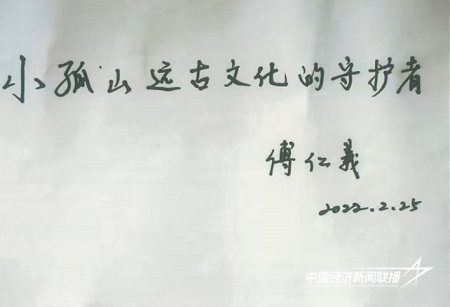 小孤山远古文化的守护者
傅仁義
2022.2.25
中国经济新闻联播